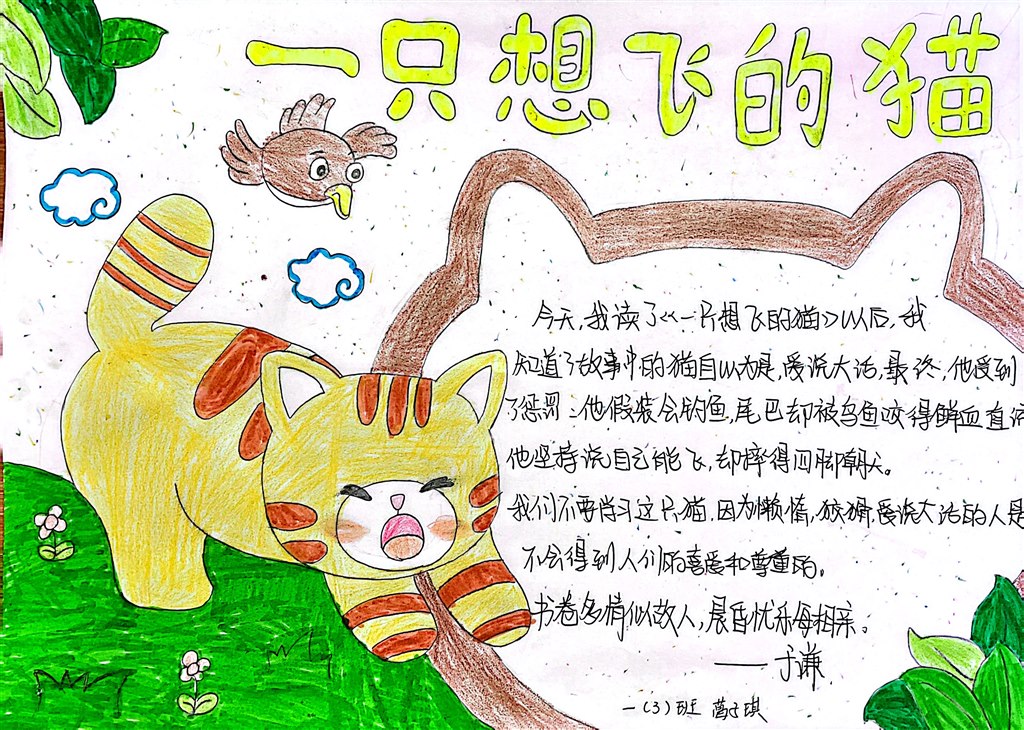 一只想飞的猫
今天,我读了《一只想飞的猫》以后,我
知道了故事中的猫自以为是,爱说大话,最终,他受到
了惩罚:他假装会钓鱼,尾巴却被乌鱼咬得鲜血直流
他坚持说自己能飞,却摔得四脚朝天。
我们不要学习这只猫,因为懒惰,狡猾,爱说大话的人是
不会得到人们的喜爱和尊重的。
书卷多情似故人,晨昏忧乐每相亲。
——于谦
一(3)班 子琪